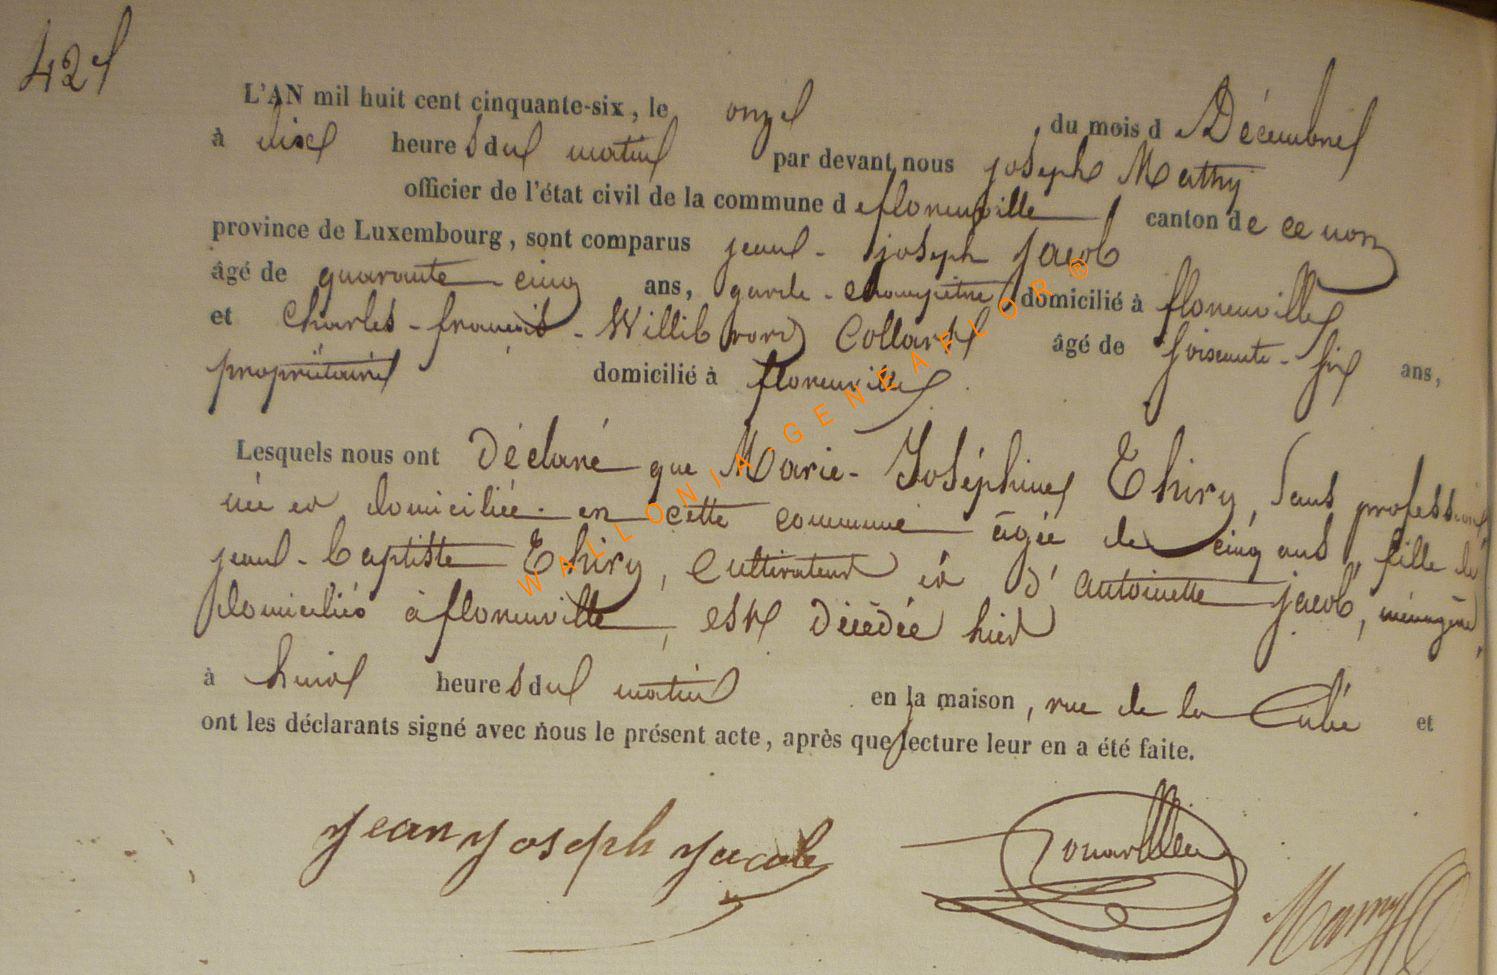 42
L'AN mil huit cent cinquante-six, le onze du mois d Décembre
à dix heures du matin par devant nous joseph Mathy
officier de l'état civil de la commune de florenville canton de ce nom
province de Luxembourg, sont comparus jean-joseph jacob
âgé de quarante-cinq ans, garde-champêtre domicilié à florenville
et Charles-françois-Willibrord Collard âgé de soixante-six ans,
propriétaire domicilié à florenville
Lesquels nous ont Déclaré que Marie-Joséphine Thiry, sans profession
née et domiciliée en cette commune âgée de cinq ans, fille de
jean-baptiste Thiry, cultivateur et d'antoinette jacob, ménagère,
domiciliés à florenville, est Décédée hier
à huit heures du matin en la maison, rue de la et
ont les déclarants signé avec nous le présent acte, après que lecture leur en a été faite.
jean joseph jacob
WALLONIA GENEAFLOR ©